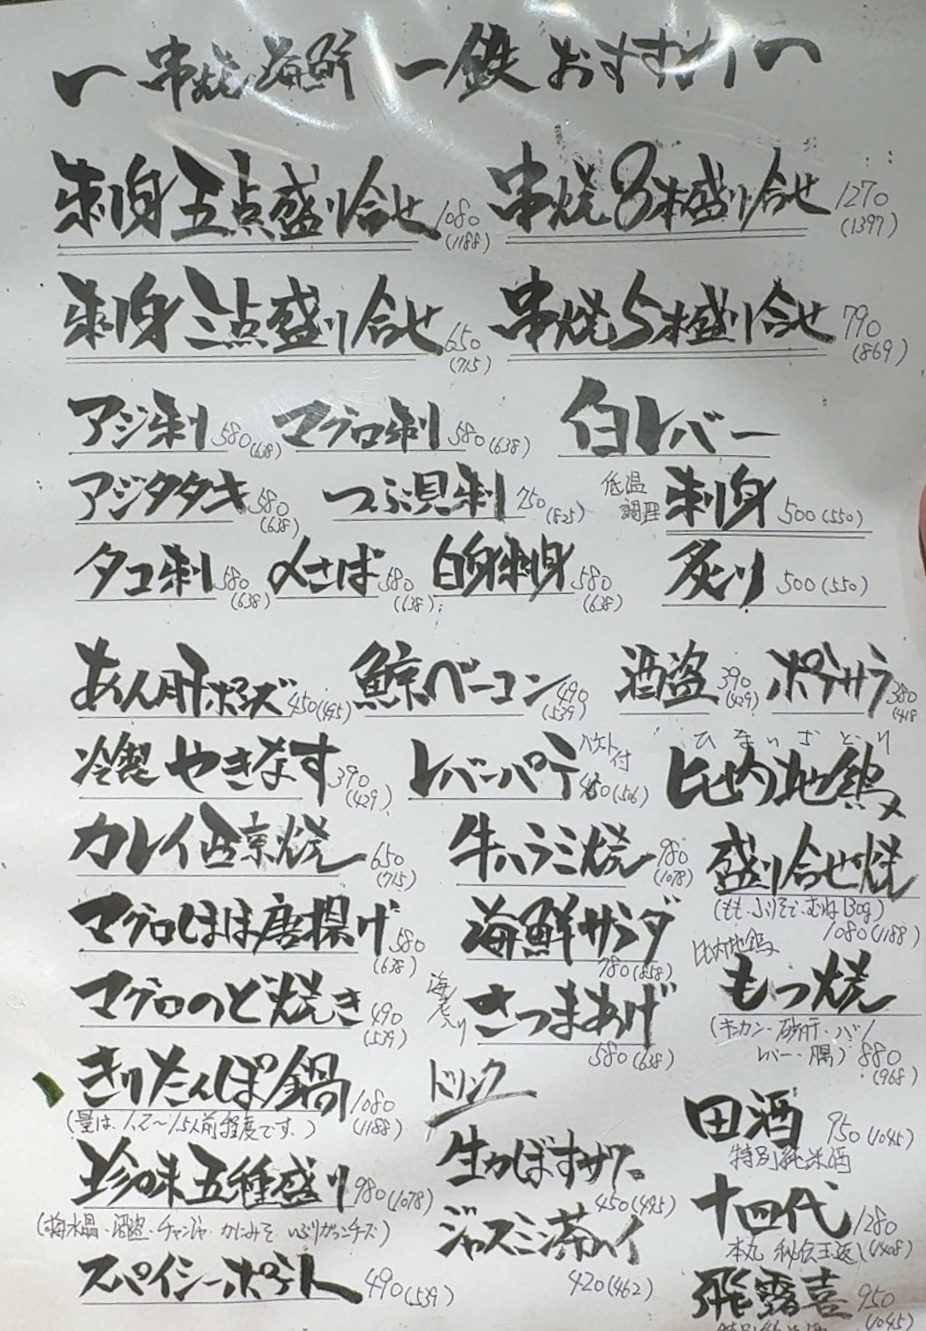 〜串焼 海鮮 一鉄 おすすめ〜
刺身五点盛り合せ 1080 (1188)
串焼8本盛り合せ 1270 (1397)
刺身三点盛り合せ 650 (715)
串焼5本盛り合せ 790 (869)
アジ刺 580 (638) マグロ刺 580 (638)
白レバー
アジタタキ 580 (638) つぶ貝刺 750 (825)
低温調理 刺身 500 (550)
タコ刺 580 (638) 〆さば 580 (638) 白身刺身 580 (638)
炙り 500 (550)
あん肝ポン酢 450 (495) 鯨ベーコン 490 (539) 酒盗 390 (429) ポテサラ 380 (418
冷製 やきなす 390 (429) レバーパテ バゲット付 460 (506)
ひないじどり
比内地鶏
盛り合せ焼
(もも・ふりそで・むね130g)
1080 (1188)
カレイ西京焼 650 (715) 牛ハラミ焼 980 (1078)
マグロほほ唐揚げ 580 (638) 海鮮サラダ 780 (858)
比内地鶏
もつ焼
(キンカン・砂肝・ハツ
レバー・腸) 880 (968)
マグロのど焼き 490 (539) 海老入り さつまあげ 580 (638)
きりたんぽ鍋 1080 (1188)
(量は、1.2〜1.5人前程度です。)
珍味五種盛り 980 (1078)
(梅水晶・酒盗・チャンジャ・かにみそ いぶりがっこチーズ)
スパイシーポテト 490 (539)
ドリンク
生かぼすサワー 450 (495)
ジャスミン茶ハイ 420 (462)
田酒 950 (1045)
特別純米酒
十四代 1280 (1408)
本丸 秘伝玉返し
飛露喜 950 (1045)
特別純米酒